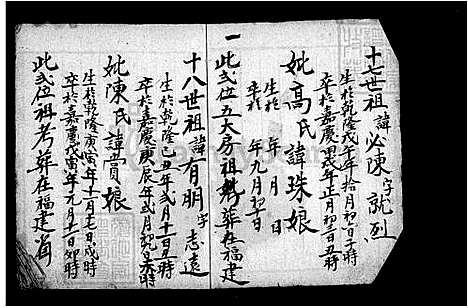 十七世祖諱必陳字就烈
生於乾隆戊子年拾月初一日子時
卒於嘉慶甲戌年正月初三日丑時
妣高氏諱珠娘
生於 年 月 日
卒於 年九月初十日
一此弍位五大房祖 葬在福建
十八世祖諱有朋字志遠
生於乾隆己丑年弍月十一日丑時
卒於嘉慶庚辰年弍月 時
妣陳氏諱賞娘
生於乾隆庚寅年十一月十七日戌時
卒於嘉慶戊寅年元月十一日卯時
此弍位祖考葬在福建省